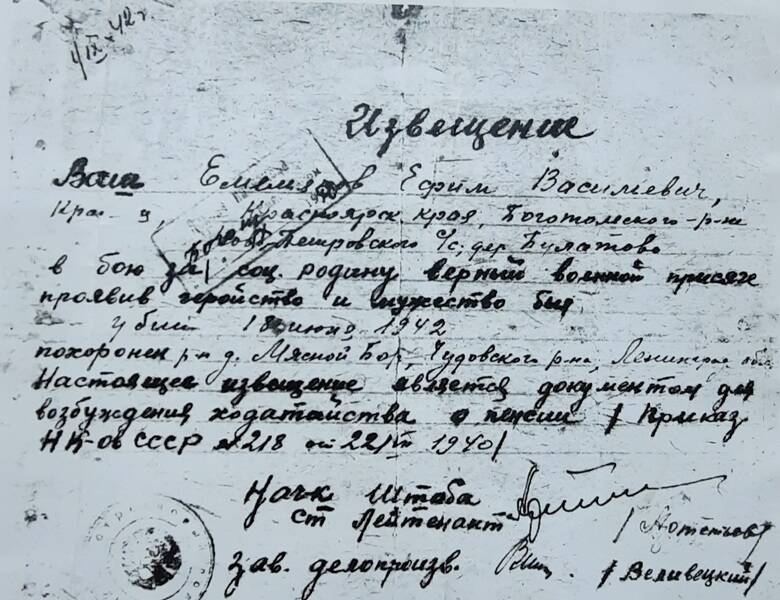 4/IX-42г.
Извещение
Ваш Емельянов Ефим Васильевич,
Красноярск края, Боготольского р-на
Петровского с/с, дер Булатово
в бою за соц. родину верный военной присяге
проявив геройство и мужество был
убит 18 июня, 1942
похоронен р-н д. Мясной Бор, Чудовского р-на, Ленинград обл
Настоящее извещение является документом для
возбуждения ходатайства о пенсии / Приказ
НК-ов СССР №218 от 1940/
Нач-к Штаба
ст Лейтенант
зав. делопроизв. /Веливецкий/